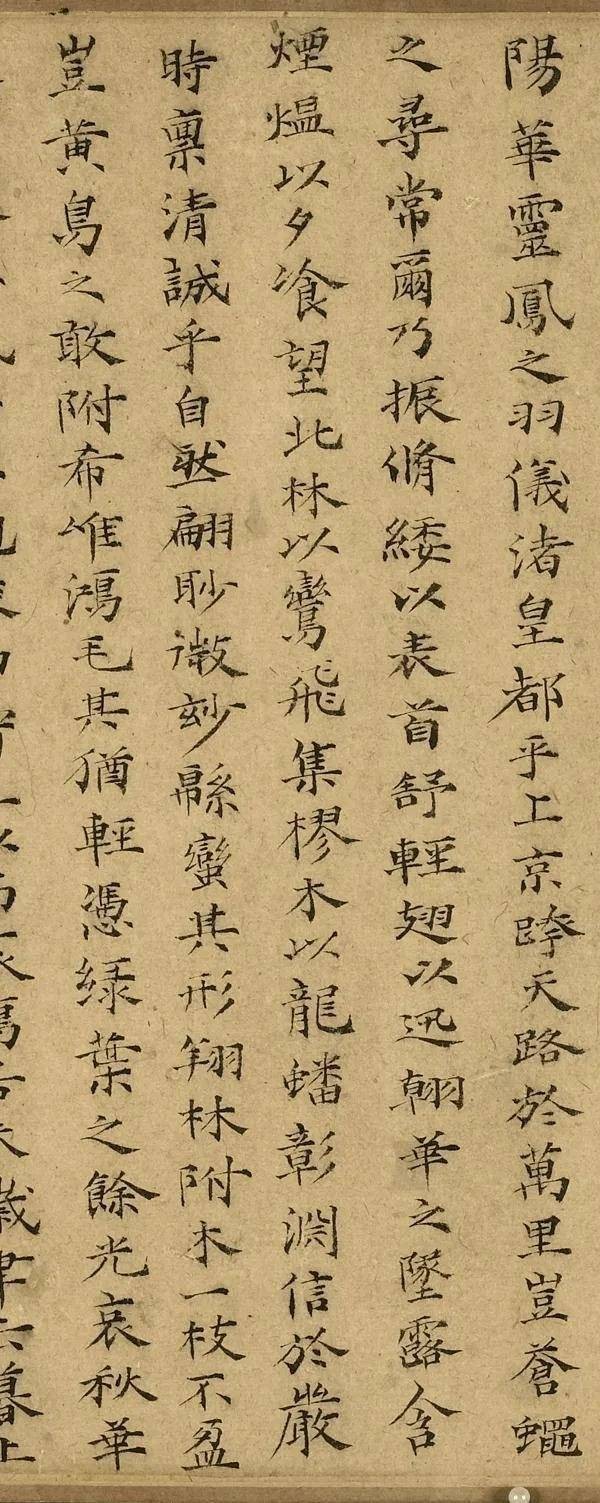 陽華靈鳳之羽儀渚皇都乎上京跨天路於萬里豈蒼蠅
之尋常爾乃振脩緌以表首舒輕翅以迅翰華之墜露含
煙熅以夕飡望北林以鸞飛集樛木以龍蟠彰淵信於嚴
時稟清誠乎自然翩眇微玅緜蠻其形翔林附木一枝不盈
豈黃鳥之敢附希唯鴻毛其猶輕憑綠葉之餘光哀秋華